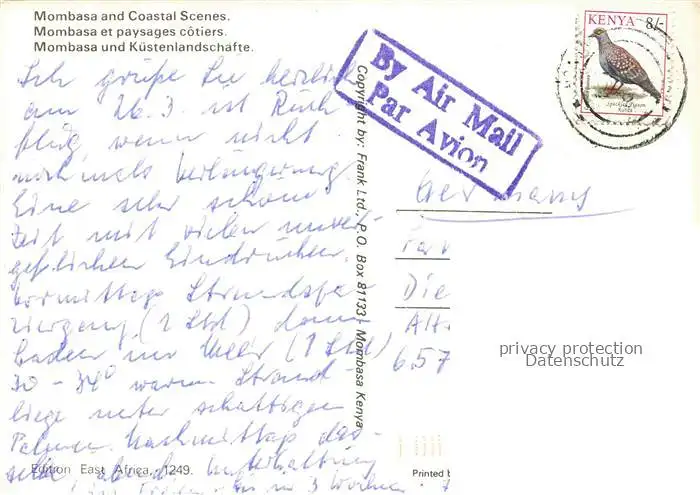 Mombasa and Coastal Scenes.
Mombasa et paysages côtiers.
Mombasa und Küstenlandschafte.
KENYA 8/-
By Air Mail
Par Avion
Copyright by: Frank Ltd., P.O. Box 81133 - Mombasa Kenya
Ich grüße Sie herzlich
am 26.3. ist Rück
flug, wenn nicht
nochmals Verlängerung
Eine sehr schöne
Zeit mit vielen unver-
geßlichen Eindrücken.
vormittags Strandspa
ziergang (1 Std) dann
baden im Meer (1 Std)
30 - 34° warm Strand-
liege unter schattigen
Palmen. Nachmittags das-
selbe abends Unterhaltung
in 3 Wochen
Edition East Africa, 1249.
Germany
Die
657
privacy protection
Datenschutz
Printed b